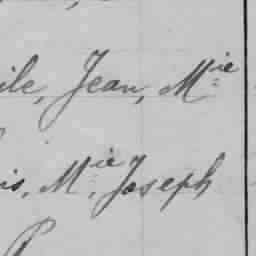 ile, Jean, Mie
is, Mie, Joseph